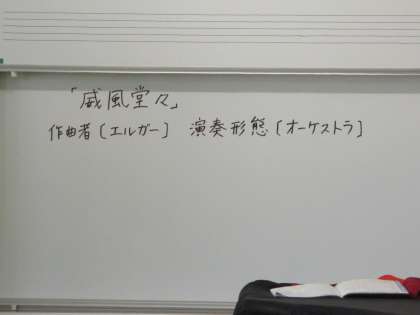 「威風堂々」
作曲者〔エルガー〕 演奏形態〔オーケストラ〕